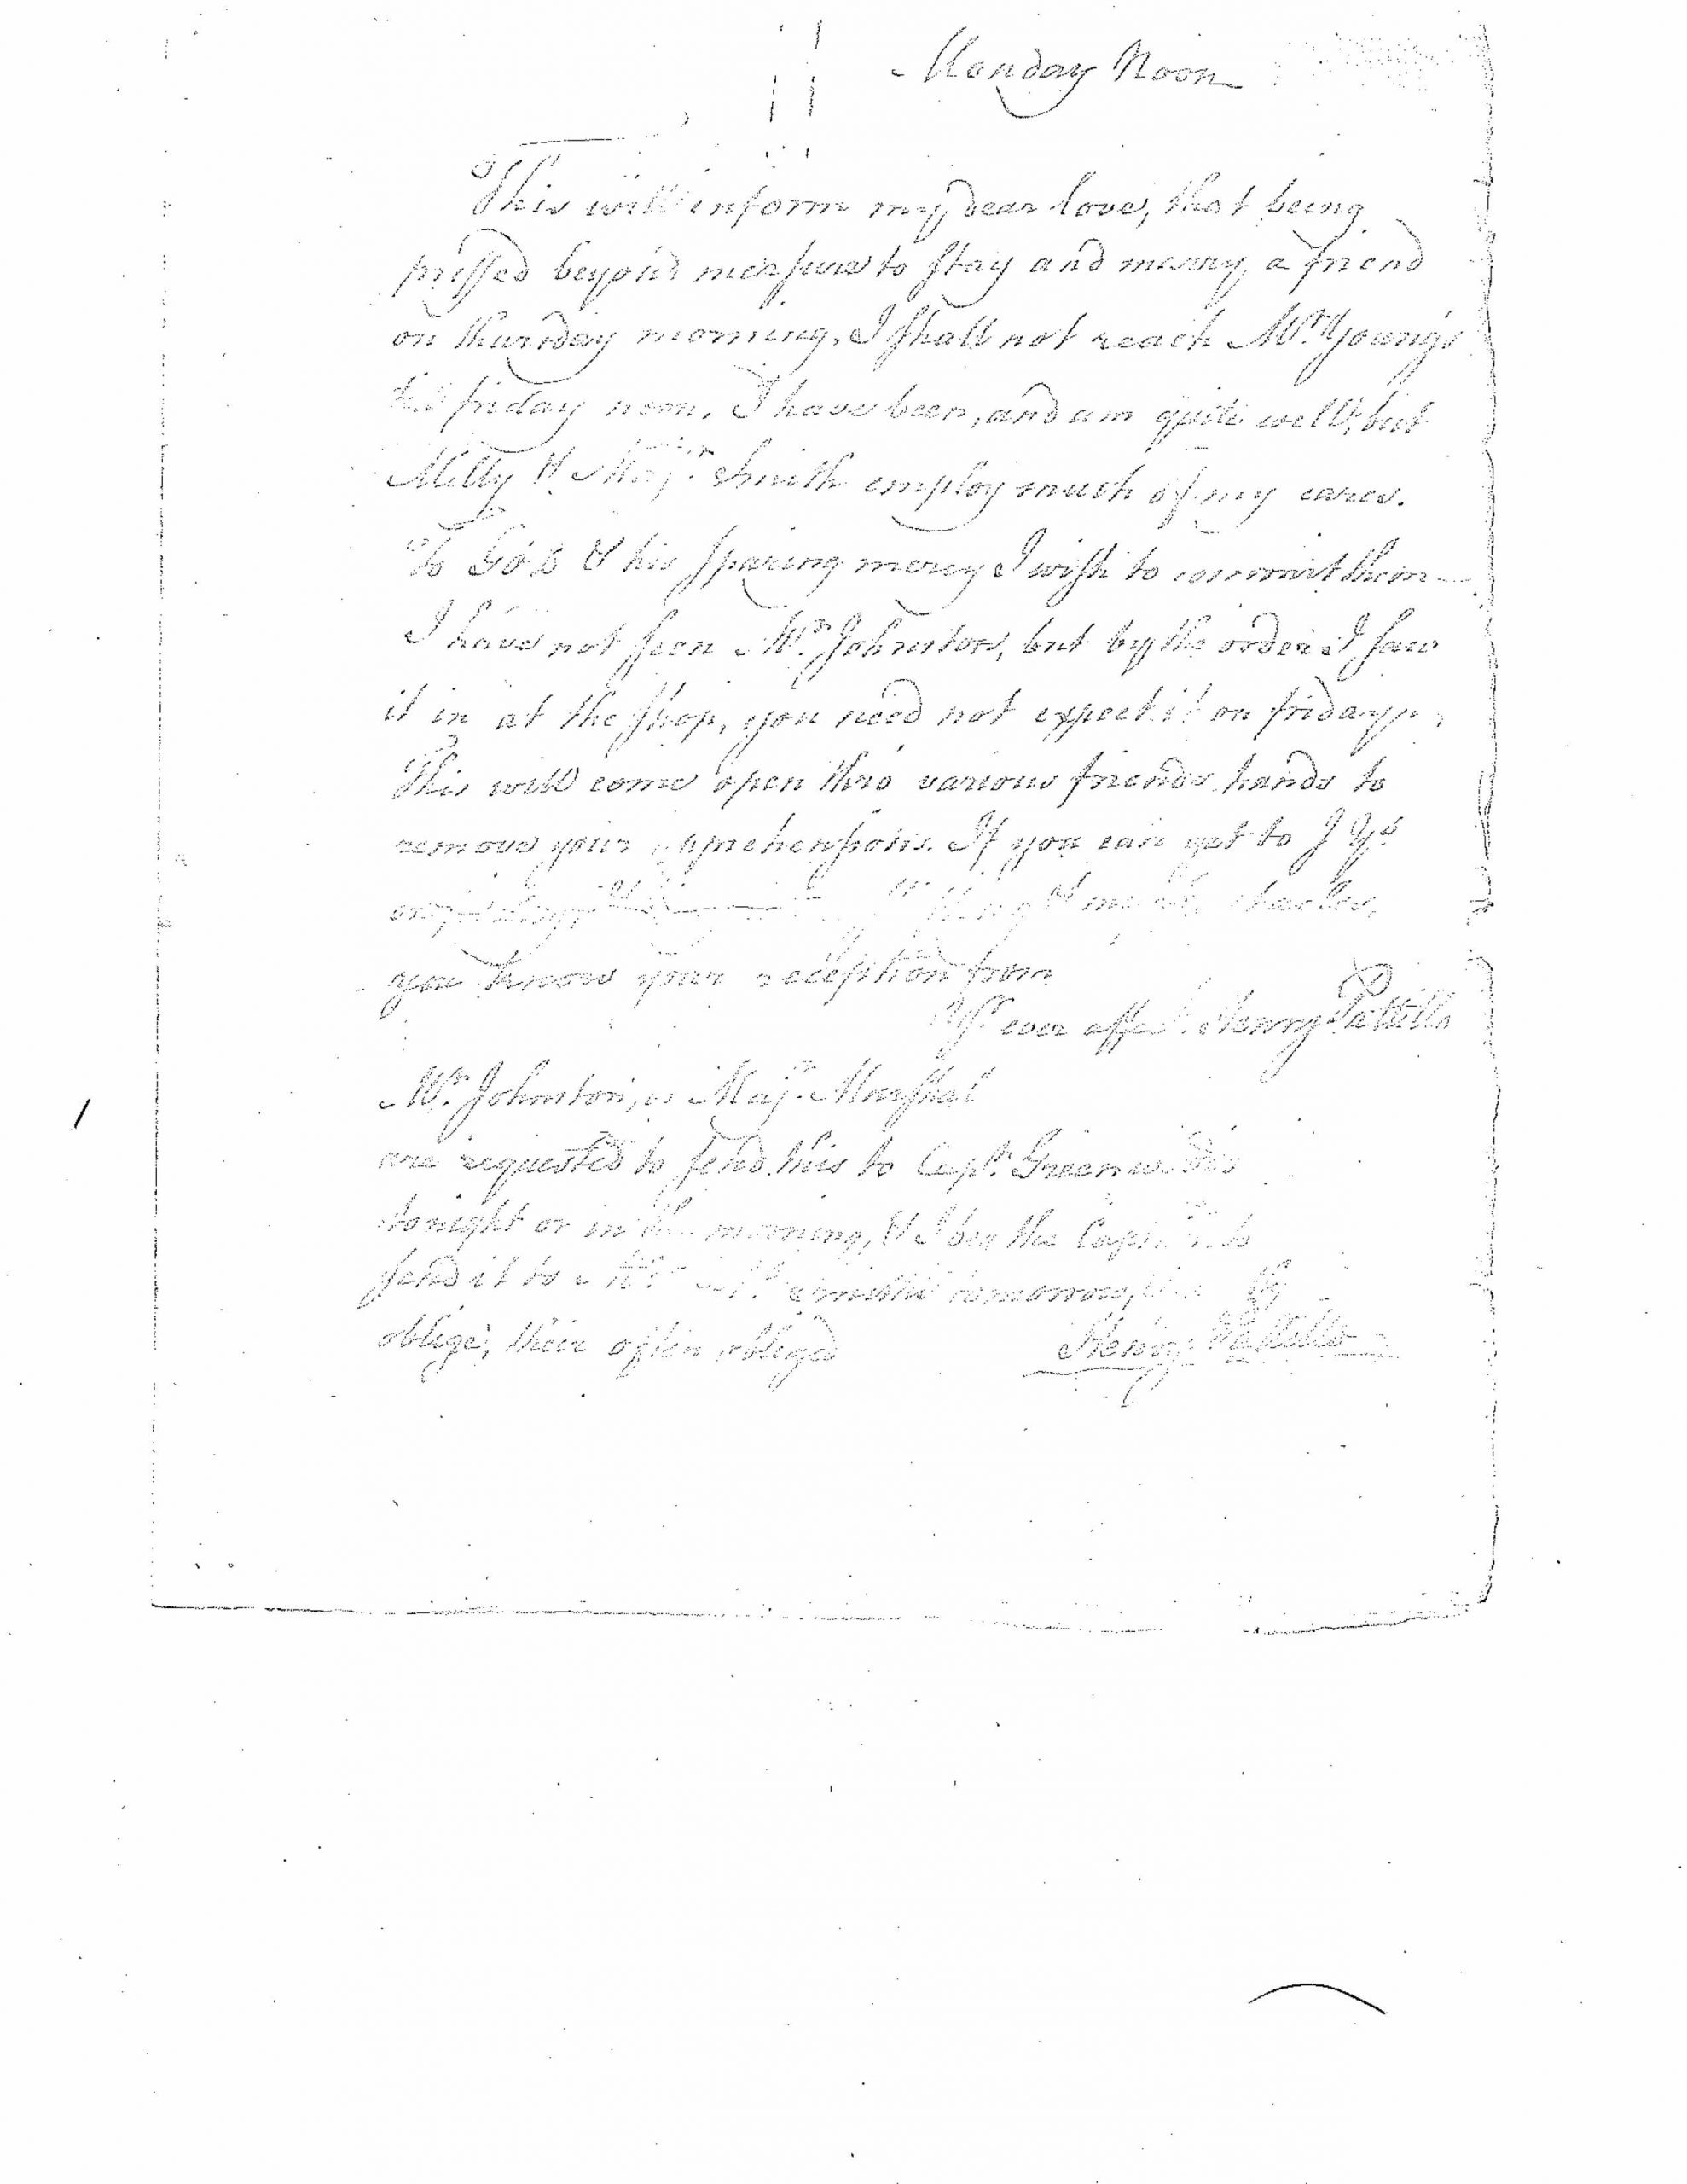 Monday Noon
This will inform my dear love, that being
pressed beyond measure to stay and marry a friend
on thursday morning, I shall not reach Mr. Young's
till friday noon. I have been, and am quite well, but
Milly & Majr. Smith employ much of my cares.
To God & his sparing mercy I wish to commit them
I have not seen Mr. Johnston, but by the order I saw
it in at the shop, you need not expect it on friday
This will come open thro various friends hands to
remove your apprehensions. If you can get to J Ys
you know your reception from
Yr. ever affect. Henry Pattillo
Mr. Johnston, or Majr. Marshal
are requested to send this to Capt. Greenwood's
tonight or in the morning, & I beg the Captain to
send it to tomorrow,
oblige, their often obliged Henry Pattillo